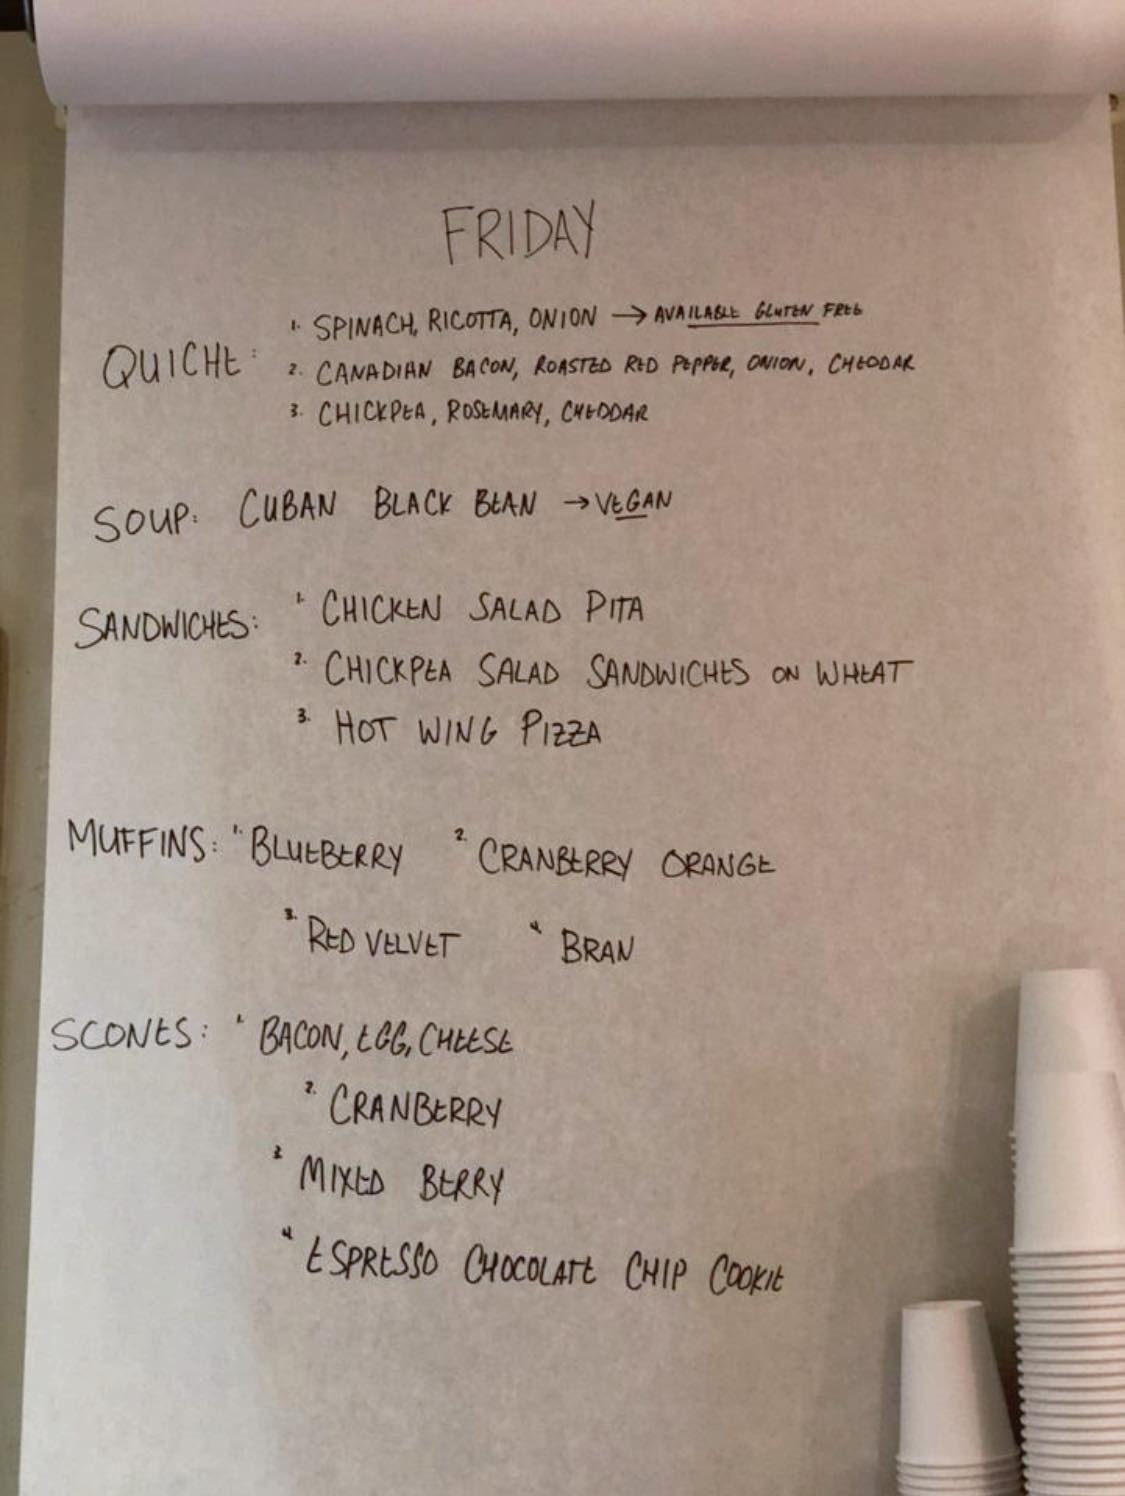 FRIDAY
QUICHE: 1. SPINACH, RICOTTA, ONION → AVAILABLE GLUTEN FREE
2. CANADIAN BACON, ROASTED RED PEPPER, ONION, CHEDDAR
3. CHICKPEA, ROSEMARY, CHEDDAR
SOUP: CUBAN BLACK BEAN → VEGAN
SANDWICHES: 1. CHICKEN SALAD PITA
2. CHICKPEA SALAD SANDWICHES ON WHEAT
3. HOT WING PIZZA
MUFFINS: 1. BLUEBERRY 2. CRANBERRY ORANGE
3. RED VELVET 4. BRAN
SCONES: 1. BACON, EGG, CHEESE
2. CRANBERRY
3. MIXED BERRY
4. ESPRESSO CHOCOLATE CHIP COOKIE